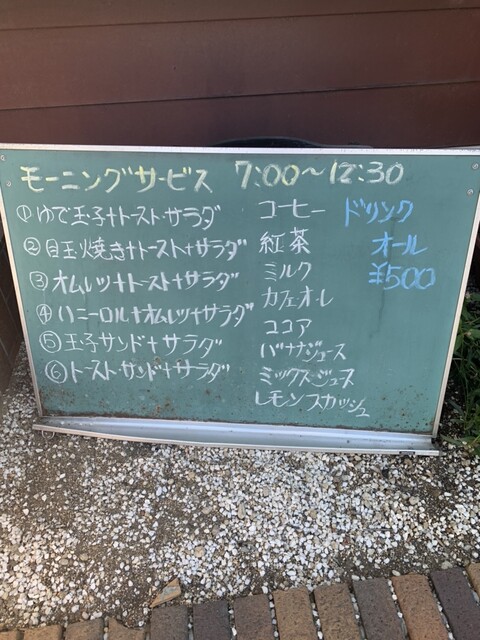 モーニングサービス 7:00～12:30
①ゆで玉子+トースト・サラダ
②目玉焼き+トースト+サラダ
③オムレツ+トースト+サラダ
④ハニーロール+オムレツ+サラダ
⑤玉子サンド+サラダ
⑥トーストサンド+サラダ
コーヒー
紅茶
ミルク
カフェオーレ
ココア
バナナジュース
ミックスジュース
レモンスカッシュ
ドリンク
オール
¥500